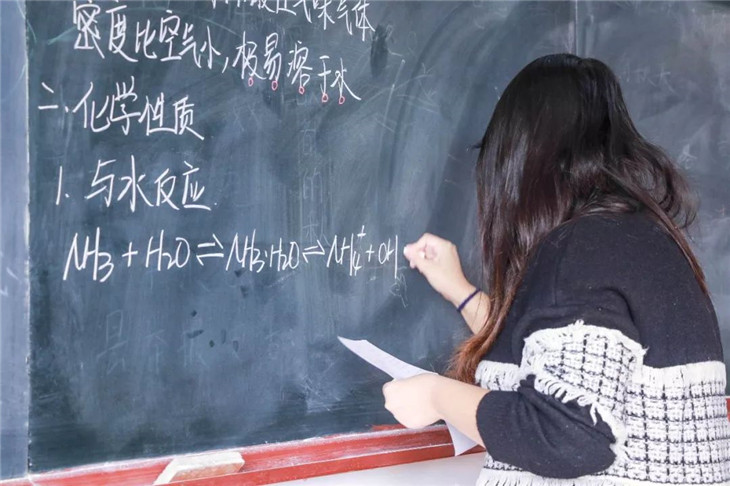 激性气味气体
密度比空气小,极易溶于水
二.化学性质
1.与水反应.
NH3+H2O⇌NH3·H2O⇌NH4⁺+OH